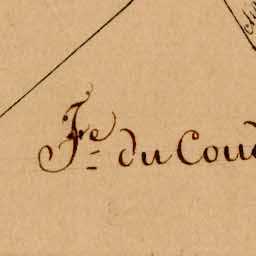 Fe du Coud